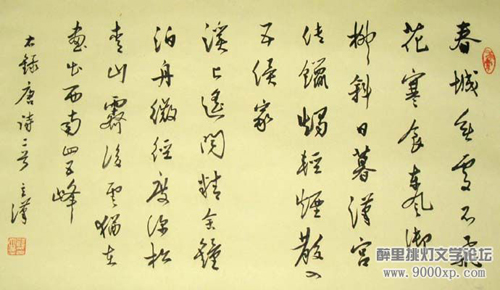 春城無處不飛
花寒食東風御
柳斜日暮漢宮
傳蠟燭輕煙散入
五侯家
溪上遙聞精舍鐘
泊舟微徑度深松
青山霽後雲猶在
畫出西南四五峰
右錄唐詩二首
醉里挑灯文学论坛
www.9000xp.com